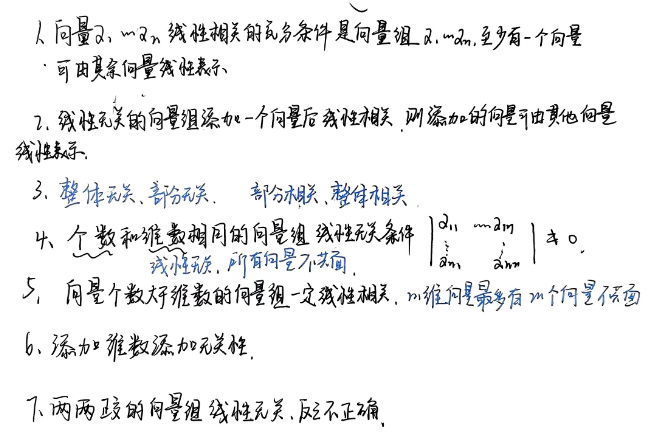 1、向量α₁…αₙ线性相关的充分条件是向量组α₁…αₙ,至少有一个向量
可由其余向量线性表示
2、线性无关的向量组添加一个向量后线性相关,则添加的向量可由其他向量
线性表示.
3、整体无关、部分无关. 部分相关、整体相关
4、个数和维数相同的向量组线性无关条件 |α₁₁ …α₁ₙ ⋮ ⋮ αₙ₁ αₙₙ| ≠ 0.
线性无关,所有向量不共面.
5、向量个数大于维数的向量组一定线性相关,n维向量最多有n个向量不共面
6、添加维数添加无关性.
7、两两正交的向量组线性无关,反之不正确.